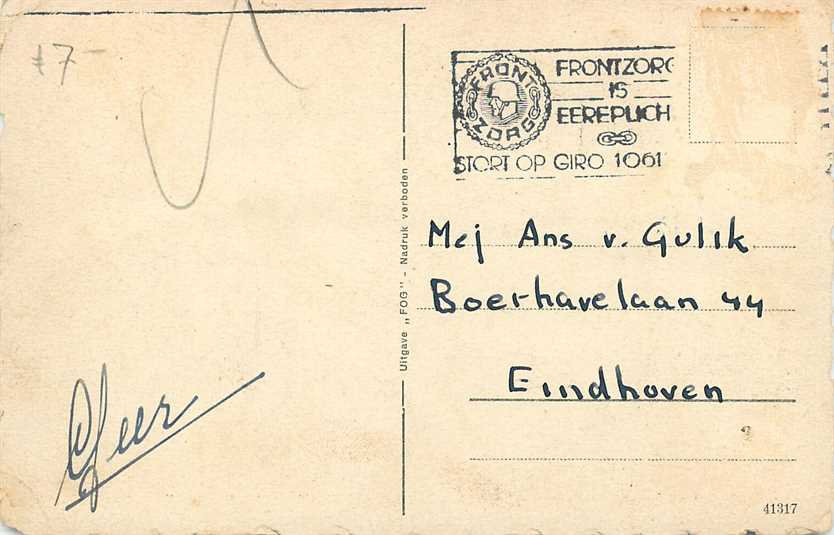 7-
FRONT ZORG
FRONTZORG
IS
EEREPLICH
STORT OP GIRO 1061
Uitgave „FOG" - Nadruk verboden
Mej Ans v. Gulik
Boerhavelaan 44
Eindhoven
41317